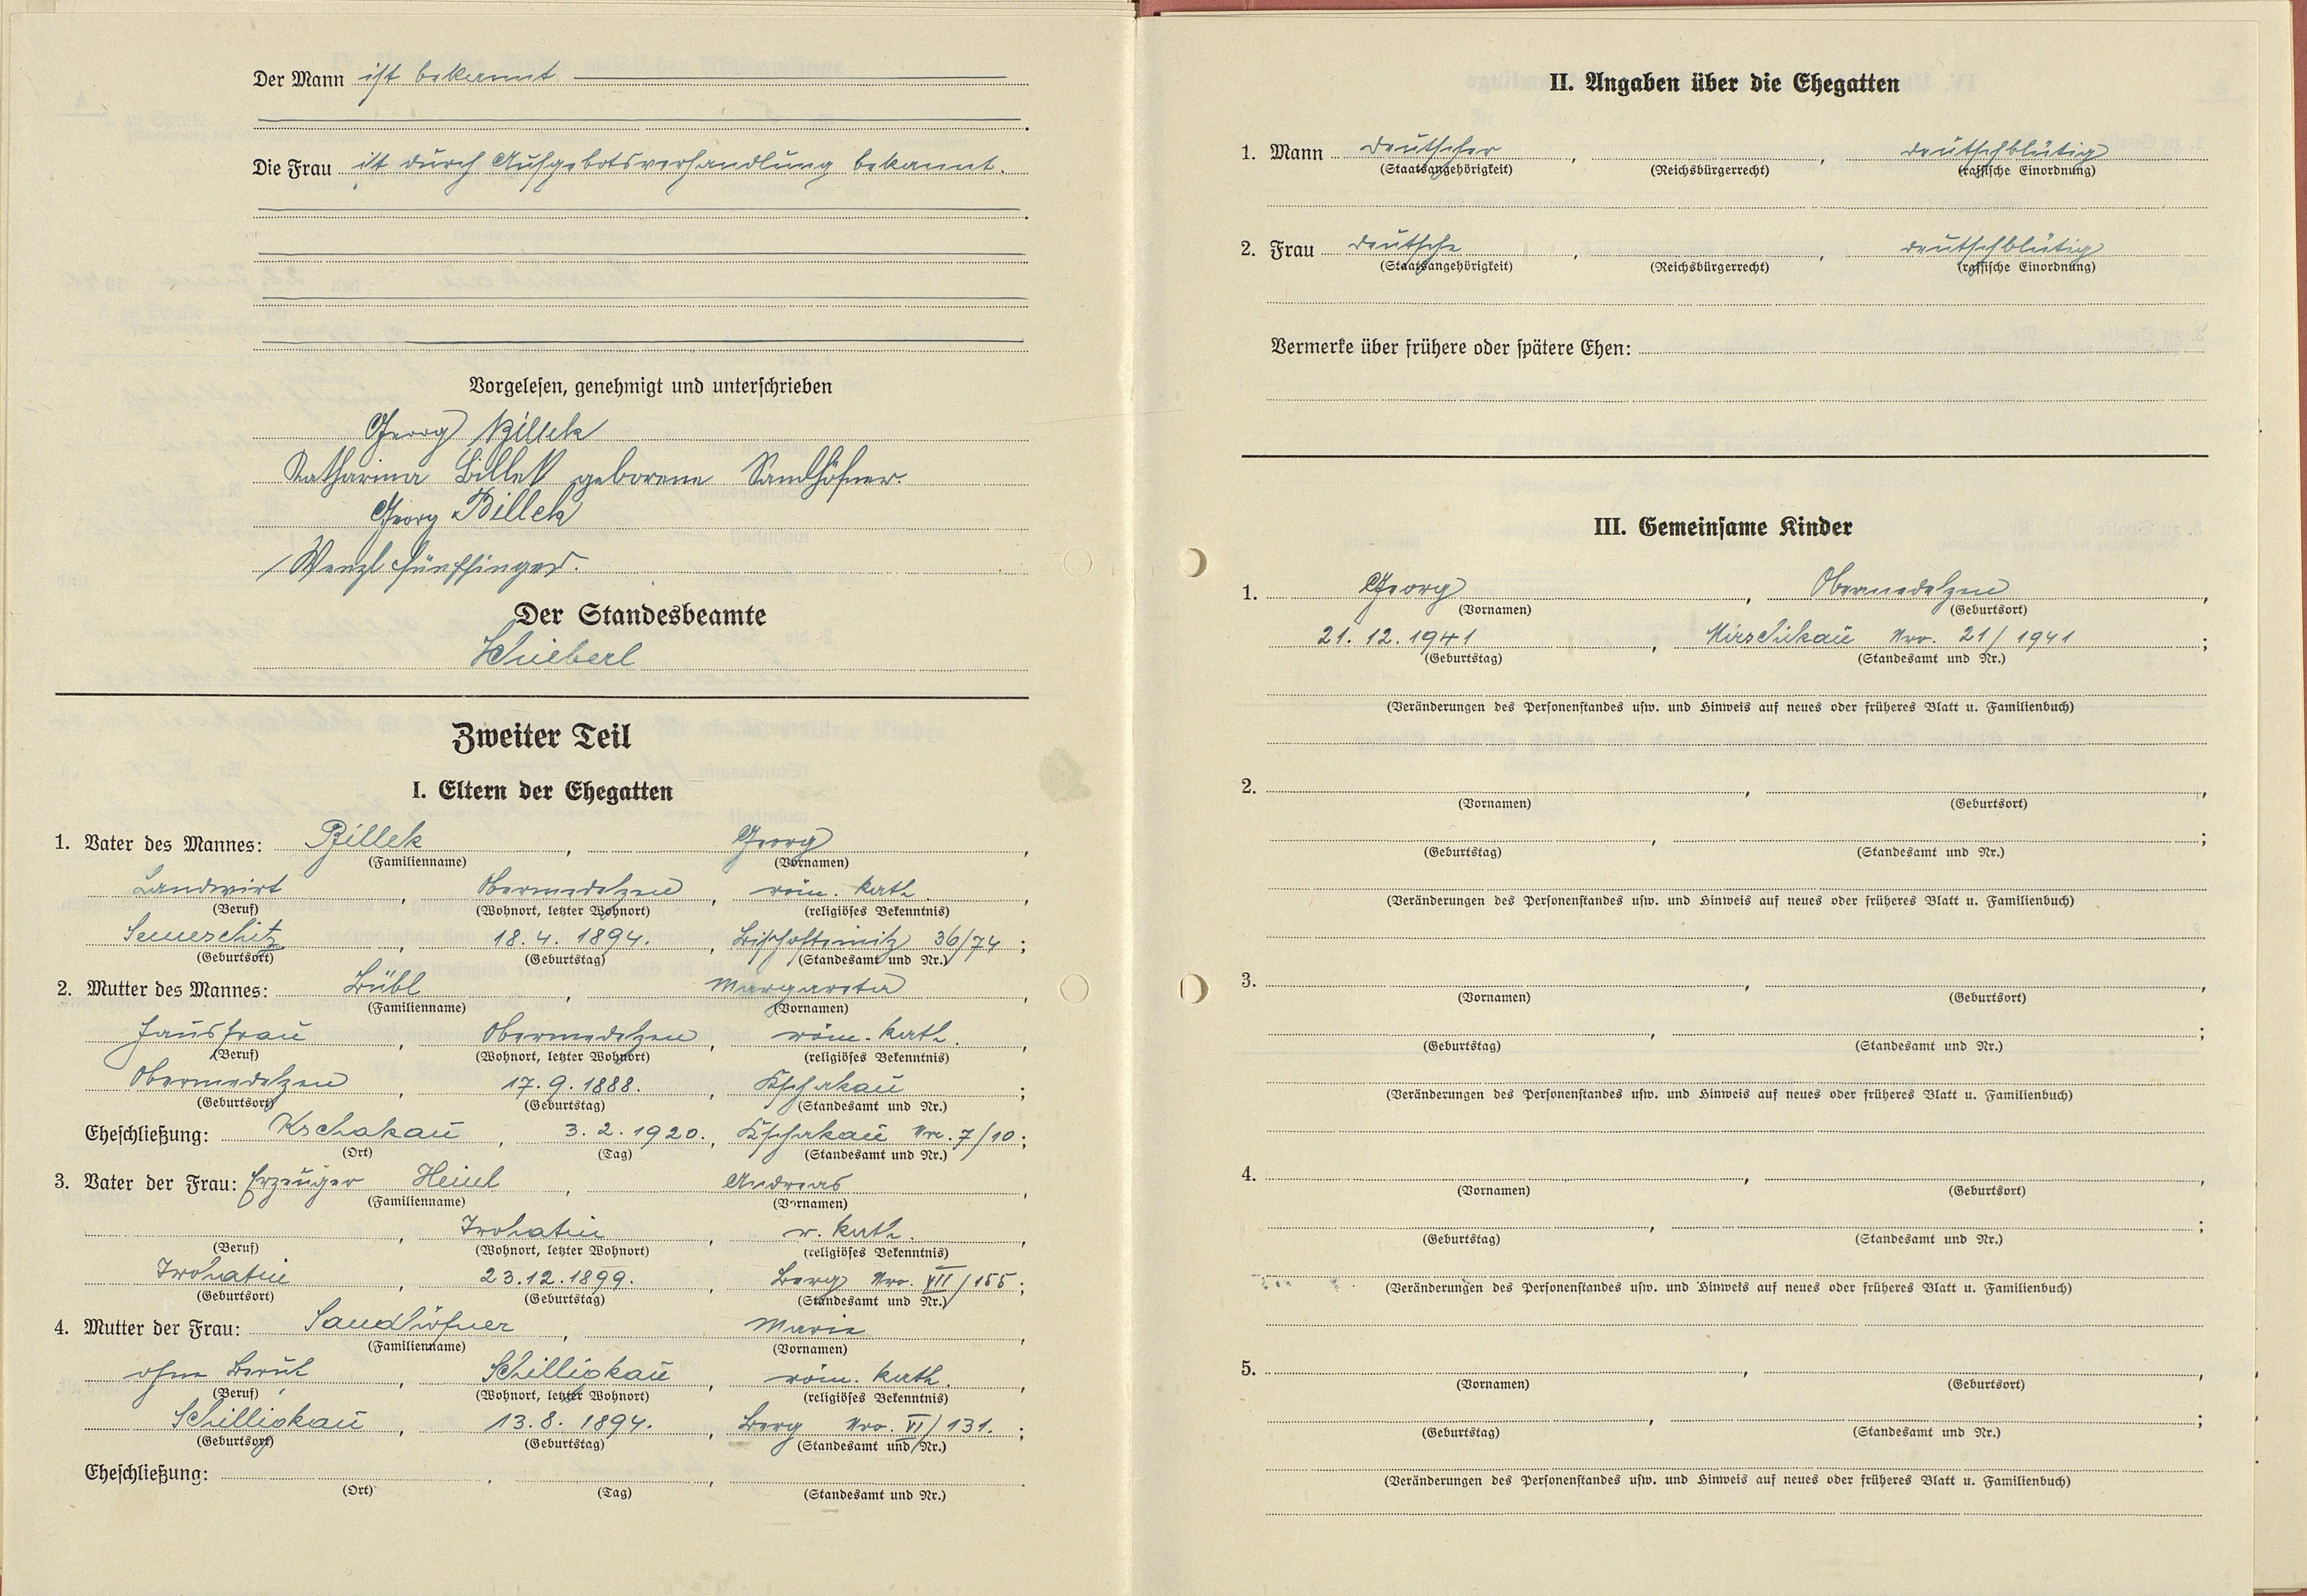 Der Mann ist bekannt
Die Frau ist durch Aufgebotsverhandlung bekannt.
Vorgelesen, genehmigt und unterschrieben
Georg Billek
Katharina Billek geborene Sandhöfner.
Georg Billek
Wenzl Fünffinger.
Der Standesbeamte
Zweiter Teil
I. Eltern der Ehegatten
1. Vater des Mannes: Billek, Georg,
(Familienname) (Vornamen)
Landwirt, Obermedelzen, röm. kath.,
(Beruf) (Wohnort, letzter Wohnort) (religiöses Bekenntnis)
Semeschitz, 18.4.1894., Bischofteinitz 36/74;
(Geburtsort) (Geburtstag) (Standesamt und Nr.)
2. Mutter des Mannes: Bübl, Margareta,
(Familienname) (Vornamen)
Hausfrau, Obermedelzen, röm. kath.,
(Beruf) (Wohnort, letzter Wohnort) (religiöses Bekenntnis)
Obermedelzen, 17.9.1888., Kschakau;
(Geburtsort) (Geburtstag) (Standesamt und Nr.)
Eheschließung: Kschakau, 3.2.1920., Kschakau Nro. 7/10;
(Ort) (Tag) (Standesamt und Nr.)
3. Vater der Frau: Erzeuger Heinl, Andreas,
(Familienname) (Vornamen)
, Trohatin, r. kath.,
(Beruf) (Wohnort, letzter Wohnort) (religiöses Bekenntnis)
Trohatin, 23.12.1899., Berg Nro. VII/155;
(Geburtsort) (Geburtstag) (Standesamt und Nr.)
4. Mutter der Frau: Sandhöfner, Marie,
(Familienname) (Vornamen)
ohne Beruf, Schilligkau, röm. kath.,
(Beruf) (Wohnort, letzter Wohnort) (religiöses Bekenntnis)
Schilligkau, 13.8.1894., Berg Nro. VI/131.;
(Geburtsort) (Geburtstag) (Standesamt und Nr.)
Eheschließung: , , .
(Ort) (Tag) (Standesamt und Nr.)
II. Angaben über die Ehegatten
1. Mann Deutscher, , deutschblütig
(Staatsangehörigkeit) (Reichsbürgerrecht) (rassische Einordnung)
2. Frau Deutsche, , deutschblütig
(Staatsangehörigkeit) (Reichsbürgerrecht) (rassische Einordnung)
Vermerke über frühere oder spätere Ehen:
III. Gemeinsame Kinder
1. Georg, Obermedelzen,
(Vornamen) (Geburtsort)
21.12.1941, Mirschikau Nro. 21/1941;
(Geburtstag) (Standesamt und Nr.)
(Veränderungen des Personenstandes usw. und Hinweis auf neues oder früheres Blatt u. Familienbuch)
2. , ,
(Vornamen) (Geburtsort)
, ;
(Geburtstag) (Standesamt und Nr.)
(Veränderungen des Personenstandes usw. und Hinweis auf neues oder früheres Blatt u. Familienbuch)
3. , ,
(Vornamen) (Geburtsort)
, ;
(Geburtstag) (Standesamt und Nr.)
(Veränderungen des Personenstandes usw. und Hinweis auf neues oder früheres Blatt u. Familienbuch)
4. , ,
(Vornamen) (Geburtsort)
, ;
(Geburtstag) (Standesamt und Nr.)
(Veränderungen des Personenstandes usw. und Hinweis auf neues oder früheres Blatt u. Familienbuch)
5. , ,
(Vornamen) (Geburtsort)
, ;
(Geburtstag) (Standesamt und Nr.)
(Veränderungen des Personenstandes usw. und Hinweis auf neues oder früheres Blatt u. Familienbuch)